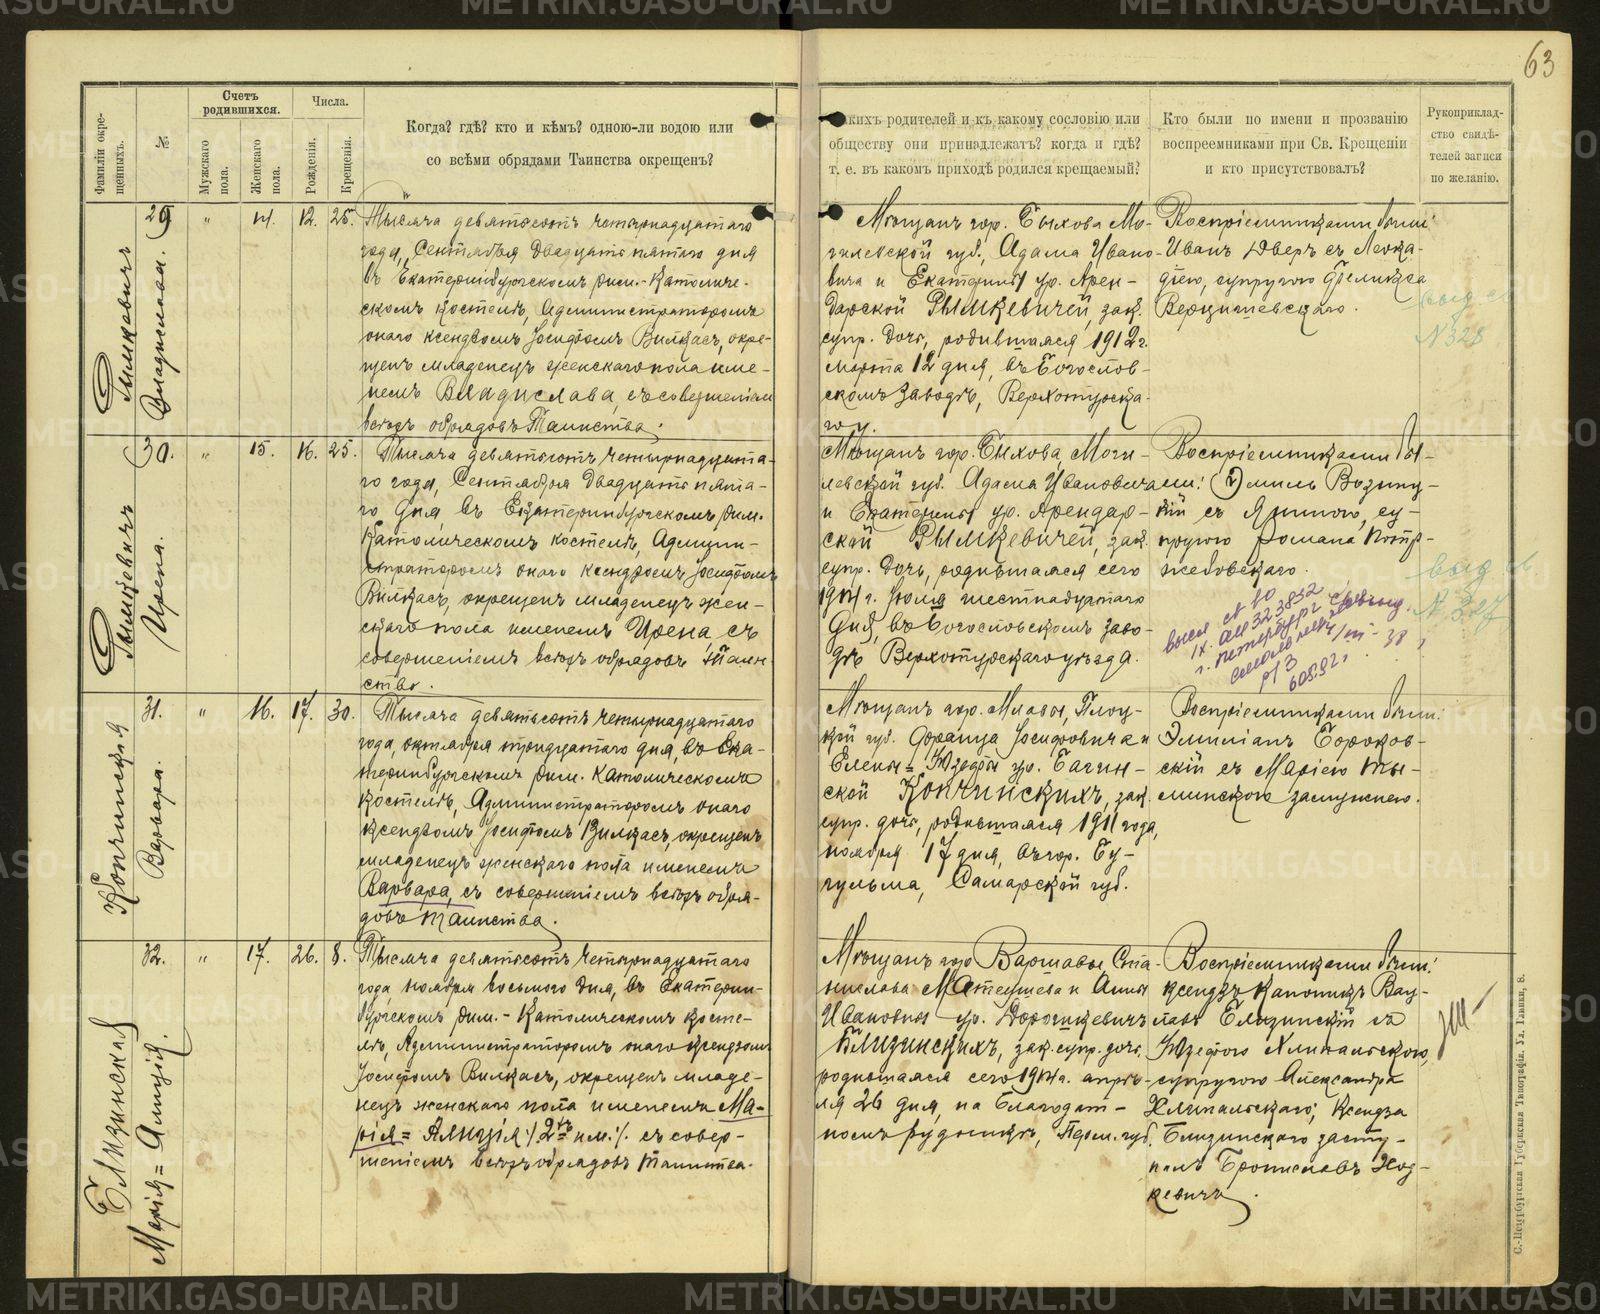 METRIKI.GASO-URAL.RU
63
Фамиліи окрещенныхъ.
№
Счетъ родившихся.
Мужскаго пола.
Женскаго пола.
Числа.
Рожденія.
Крещенія.
Когда? гдѣ? кто и кѣмъ? одною-ли водою или
со всѣми обрядами Таинства окрещенъ?
какихъ родителей и къ какому сословію или
обществу они принадлежатъ? когда и гдѣ?
т. е. въ какомъ приходѣ родился крещаемый?
Кто были по имени и прозванію
воспреемниками при Св. Крещеніи
и кто присутствовалъ?
Рукоприклад-
ство свидѣ-
телей записи
по желанію.
Рымкевичъ
Владислава.
29
"
14.
12.
25.
Тысяча девятьсотъ четырнадцатаго
года, Сентября двадцать пятаго дня
въ Екатеринбургскомъ рим.-Католиче-
скомъ костелѣ, Администраторомъ
онаго ксендзомъ Іосифомъ Вилкасъ, окре-
щенъ младенецъ женскаго пола име-
немъ Владислава, съ совершеніем
всѣхъ обрядовъ Таинства.
Мѣщанъ гор. Быхова Мо-
гилевской губ., Адама Ивано-
вича и Екатерины ур. Арен-
дарской Рымкевичей, зак.
супр. дочь, родившаяся 1912 г.
марта 12 дня, въ Богослов-
скомъ заводѣ, Верхотурска-
го у.
Воспріемниками были:
Иванъ Дверъ съ Леока-
діею, супругою Феликса
Верцишевскаго.
выд св
N 328
Рымкевичъ
Ирена.
30.
"
15.
16.
25.
Тысяча девятьсотъ четырнадцата-
го года, Сентября двадцать пята-
го дня, въ Екатеринбургскомъ рим.
Католическомъ костелѣ, Админи-
страторомъ онаго ксендзомъ Іосифомъ
Вилкасъ, окрещенъ младенецъ жен-
скаго пола именемъ Ирена, съ
совершеніемъ всѣхъ обрядовъ Таин-
ства.
Мѣщанъ гор. Быхова, Моги-
левской губ. Адама Ивановича
и Екатерины ур. Арендар-
ской Рымкевичей, зак.
супр. дочь, родившаяся сего
1914 г. Іюля шестнадцатаго
дня, въ Богословскомъ заво-
дѣ Верхотурскаго уѣзда.
Воспріемниками бы-
ли: Эмиль
кій съ Яниною, су-
пругою Романа
выд св
N 327
Кончинская
Варвара.
31.
"
16.
17.
30.
Тысяча девятьсотъ четырнадцатаго
года, октября тридцатаго дня, въ Ека-
теринбургскомъ рим. Католическомъ
костелѣ, Администраторомъ онаго
ксендзомъ Іосифомъ Вилкасъ, окрещенъ
младенецъ женскаго пола именемъ
Варвара, съ совершеніемъ всѣхъ обря-
довъ Таинства.
Мѣщанъ гор. Млавы, Плоц-
кой губ. Франца Іосифовича и
Елены=Юзефы ур. Багин-
ской Кончинскихъ, зак.
супр. дочь, родившаяся 1911 года,
ноября 17 дня, въ гор. Бу-
гульма, Самарской губ.
Воспріемниками были:
Эмиліанъ Боровов-
скій съ Маріею Ты-
минскою замужнею.
Близинская
Марія=Алиція.
32.
"
17.
26.
8.
Тысяча девятьсотъ четырнадцатаго
года, ноября восьмого дня, въ Екатерин-
бургскомъ рим.-Католическомъ косте-
лѣ, Администраторомъ онаго ксендзомъ
Іосифомъ Вилкасъ, окрещенъ младе-
нецъ женскаго пола именемъ Ма-
рія=Алиція /2хъ им./ съ совер-
шеніемъ всѣхъ обрядовъ Таинства.
Мѣщанъ гор Варшавы, Ста-
нислава Матеушева и Анны
Ивановны ур. Дорошкевичъ
Близинскихъ, зак. супр. дочь,
родившаяся сего 1914 г. апрѣ-
ля 26 дня, на Благодат-
номъ рудникѣ, Перм. губ.
Воспріемниками были:
ксендзъ каноникъ Вац-
лавъ Близинскій съ
Юзефою Хлипальскою,
супругою Александра
Хлипальскаго; ксендза
Близинскаго засту-
палъ Брониславъ Ход-
кевичъ.
С.-Петербургская Губернская Типографія. Ул. Глинки, 8.